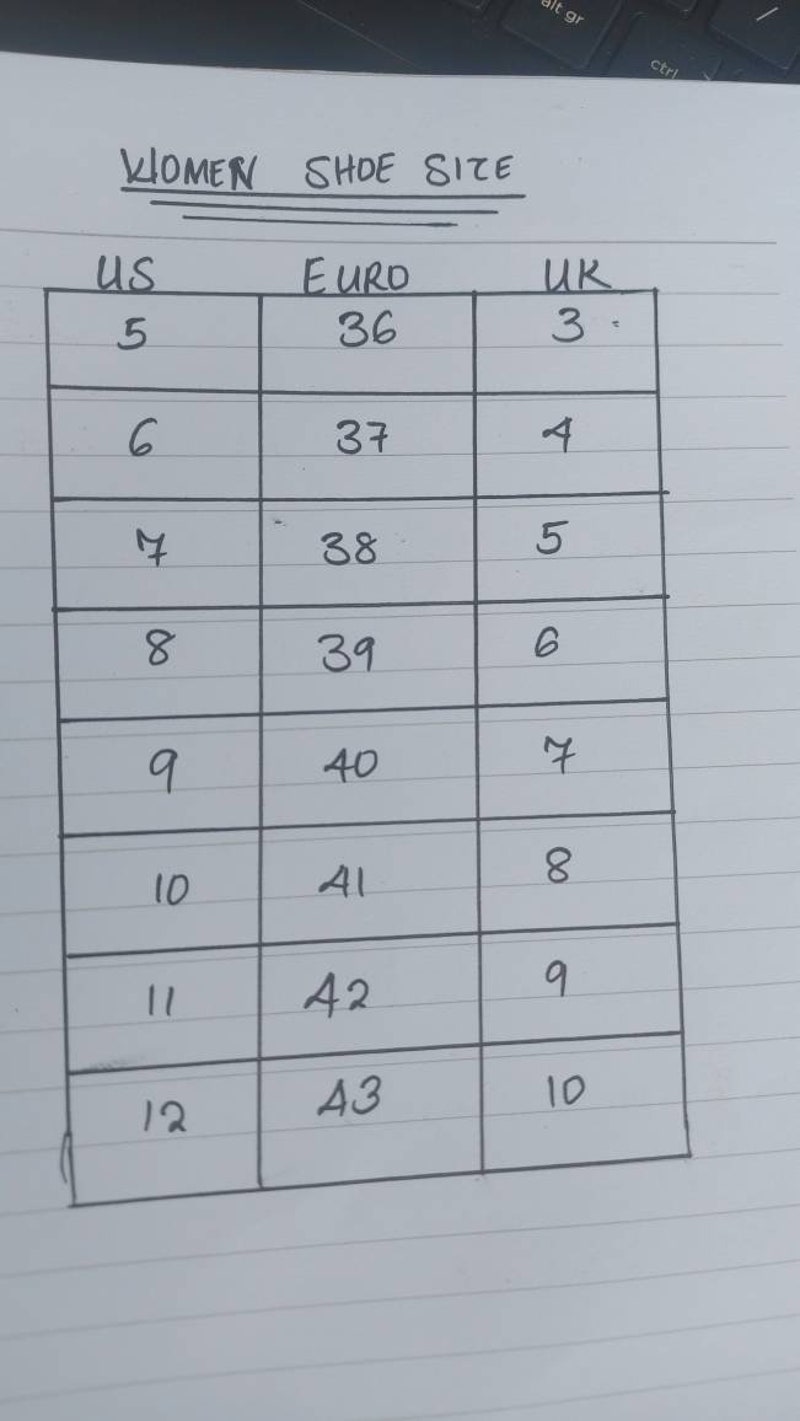 alt gr
/
ctrl
WOMEN SHOE SIZE
US EURO UK
5 36 3
6 37 4
7 38 5
8 39 6
9 40 7
10 41 8
11 42 9
12 43 10